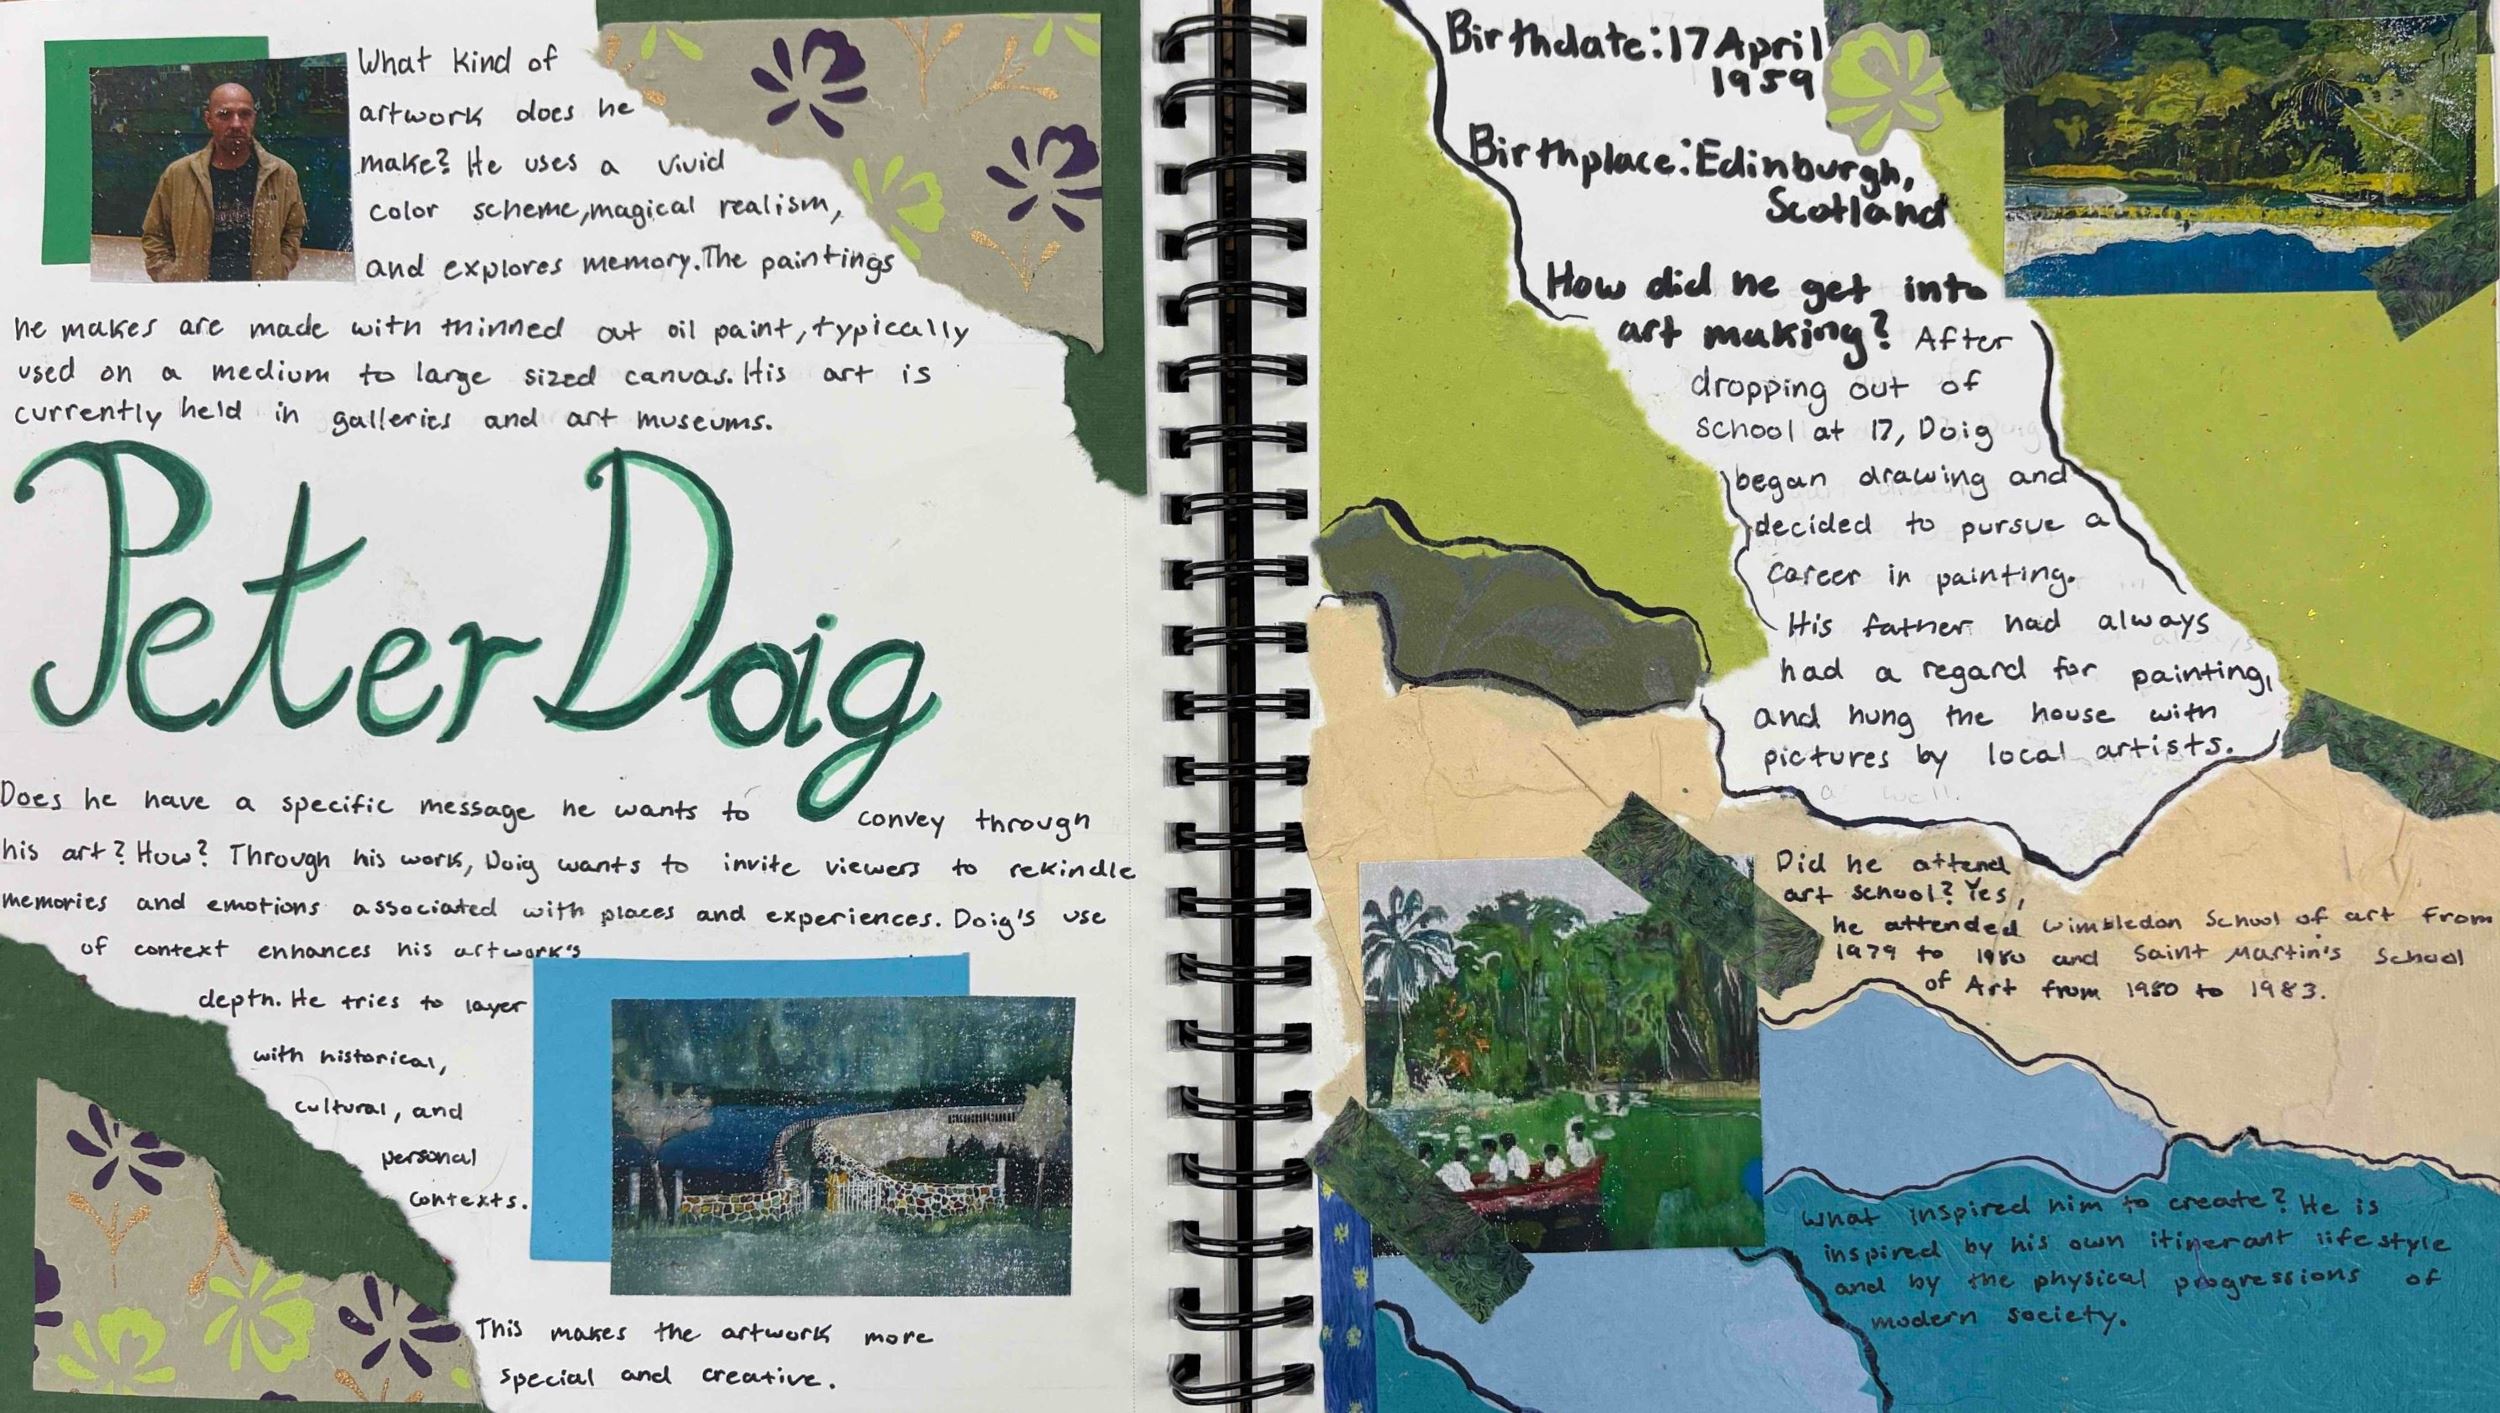 What kind of
artwork does he
make? He uses a vivid
color scheme, magical realism,
and explores memory. The paintings
he makes are made with thinned out oil paint, typically
used on a medium to large sized canvas. His art is
currently held in galleries and art museums.
Peter Doig
Does he have a specific message he wants to convey through
his art? How? Through his work, Doig wants to invite viewers to rekindle
memories and emotions associated with places and experiences. Doig's use
of context enhances his artwork's
depth. He tries to layer
with historical,
cultural, and
personal
contexts.
This makes the artwork more
special and creative.
Birthdate: 17 April
1959
Birthplace: Edinburgh,
Scotland
How did he get into
art making? After
dropping out of
school at 17, Doig
began drawing and
decided to pursue a
career in painting.
His father had always
had a regard for painting,
and hung the house with
pictures by local artists.
Did he attend
art school? Yes,
he attended Wimbledon School of art from
1979 to 1980 and Saint Martin's School
of Art from 1980 to 1983.
What inspired him to create? He is
inspired by his own itinerant lifestyle
and by the physical progressions of
modern society.